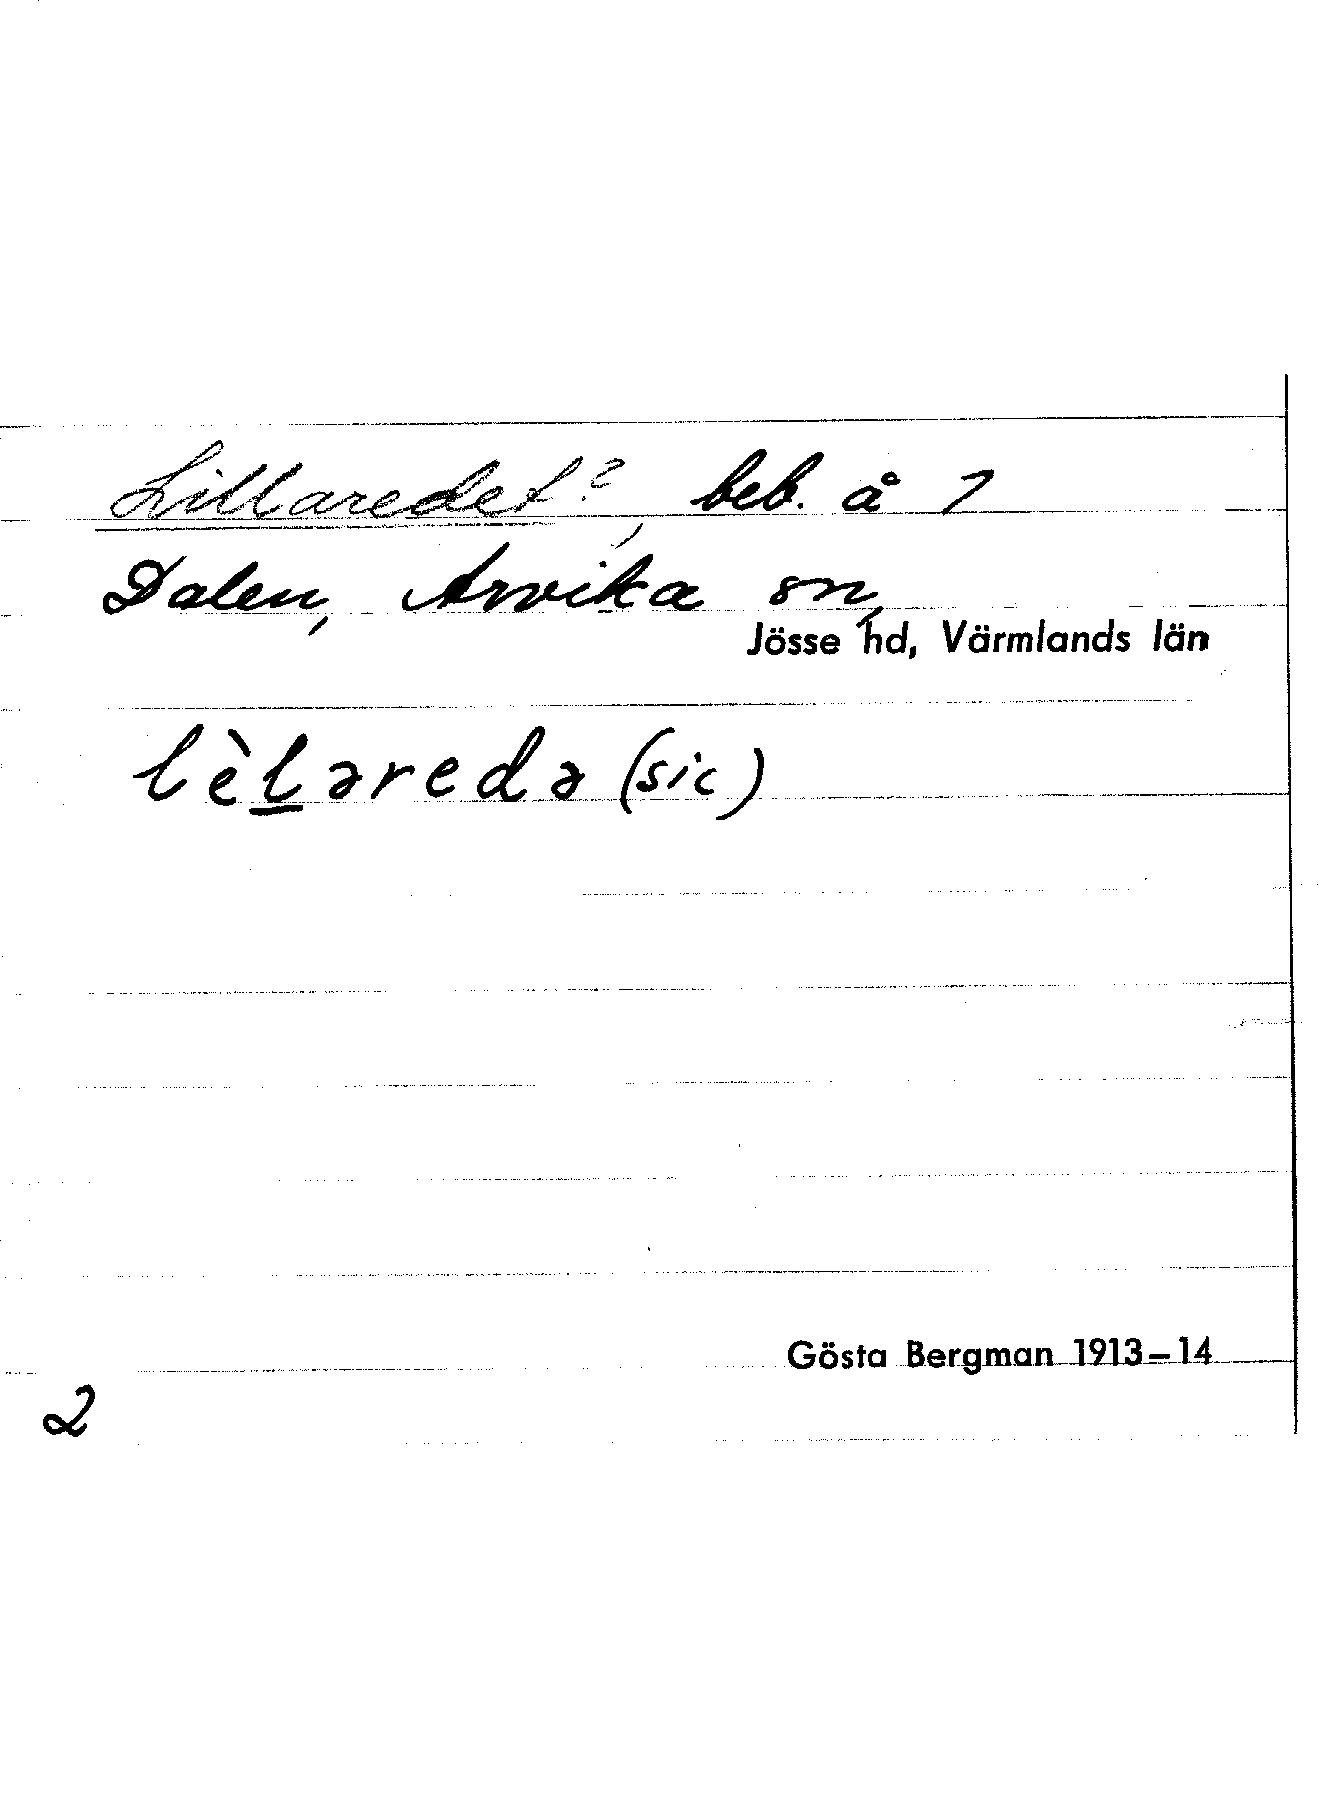 Lillaredet?, beb. å 7
Dalen, Arvika sn,
Jösse hd, Värmlands län
lèl̲əredə (sic)
Gösta Bergman 1913–14
2